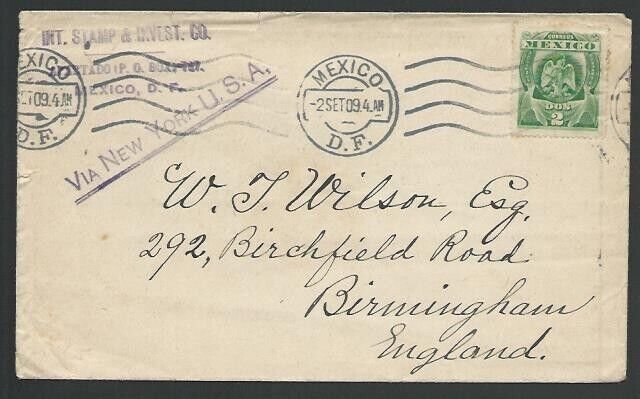 INT. STAMP & INVEST. CO.
APARTADO (P. O. BOX) 727.
MEXICO, D. F.
MEXICO
SET09.4.AM
D.F.
MEXICO
-2SET09.4.AM
D.F.
CORREOS
MEXICO
DOS
2
VIA NEW YORK U.S.A.
W. T. Wilson, Esq.
292, Birchfield Road
Birmingham
England.